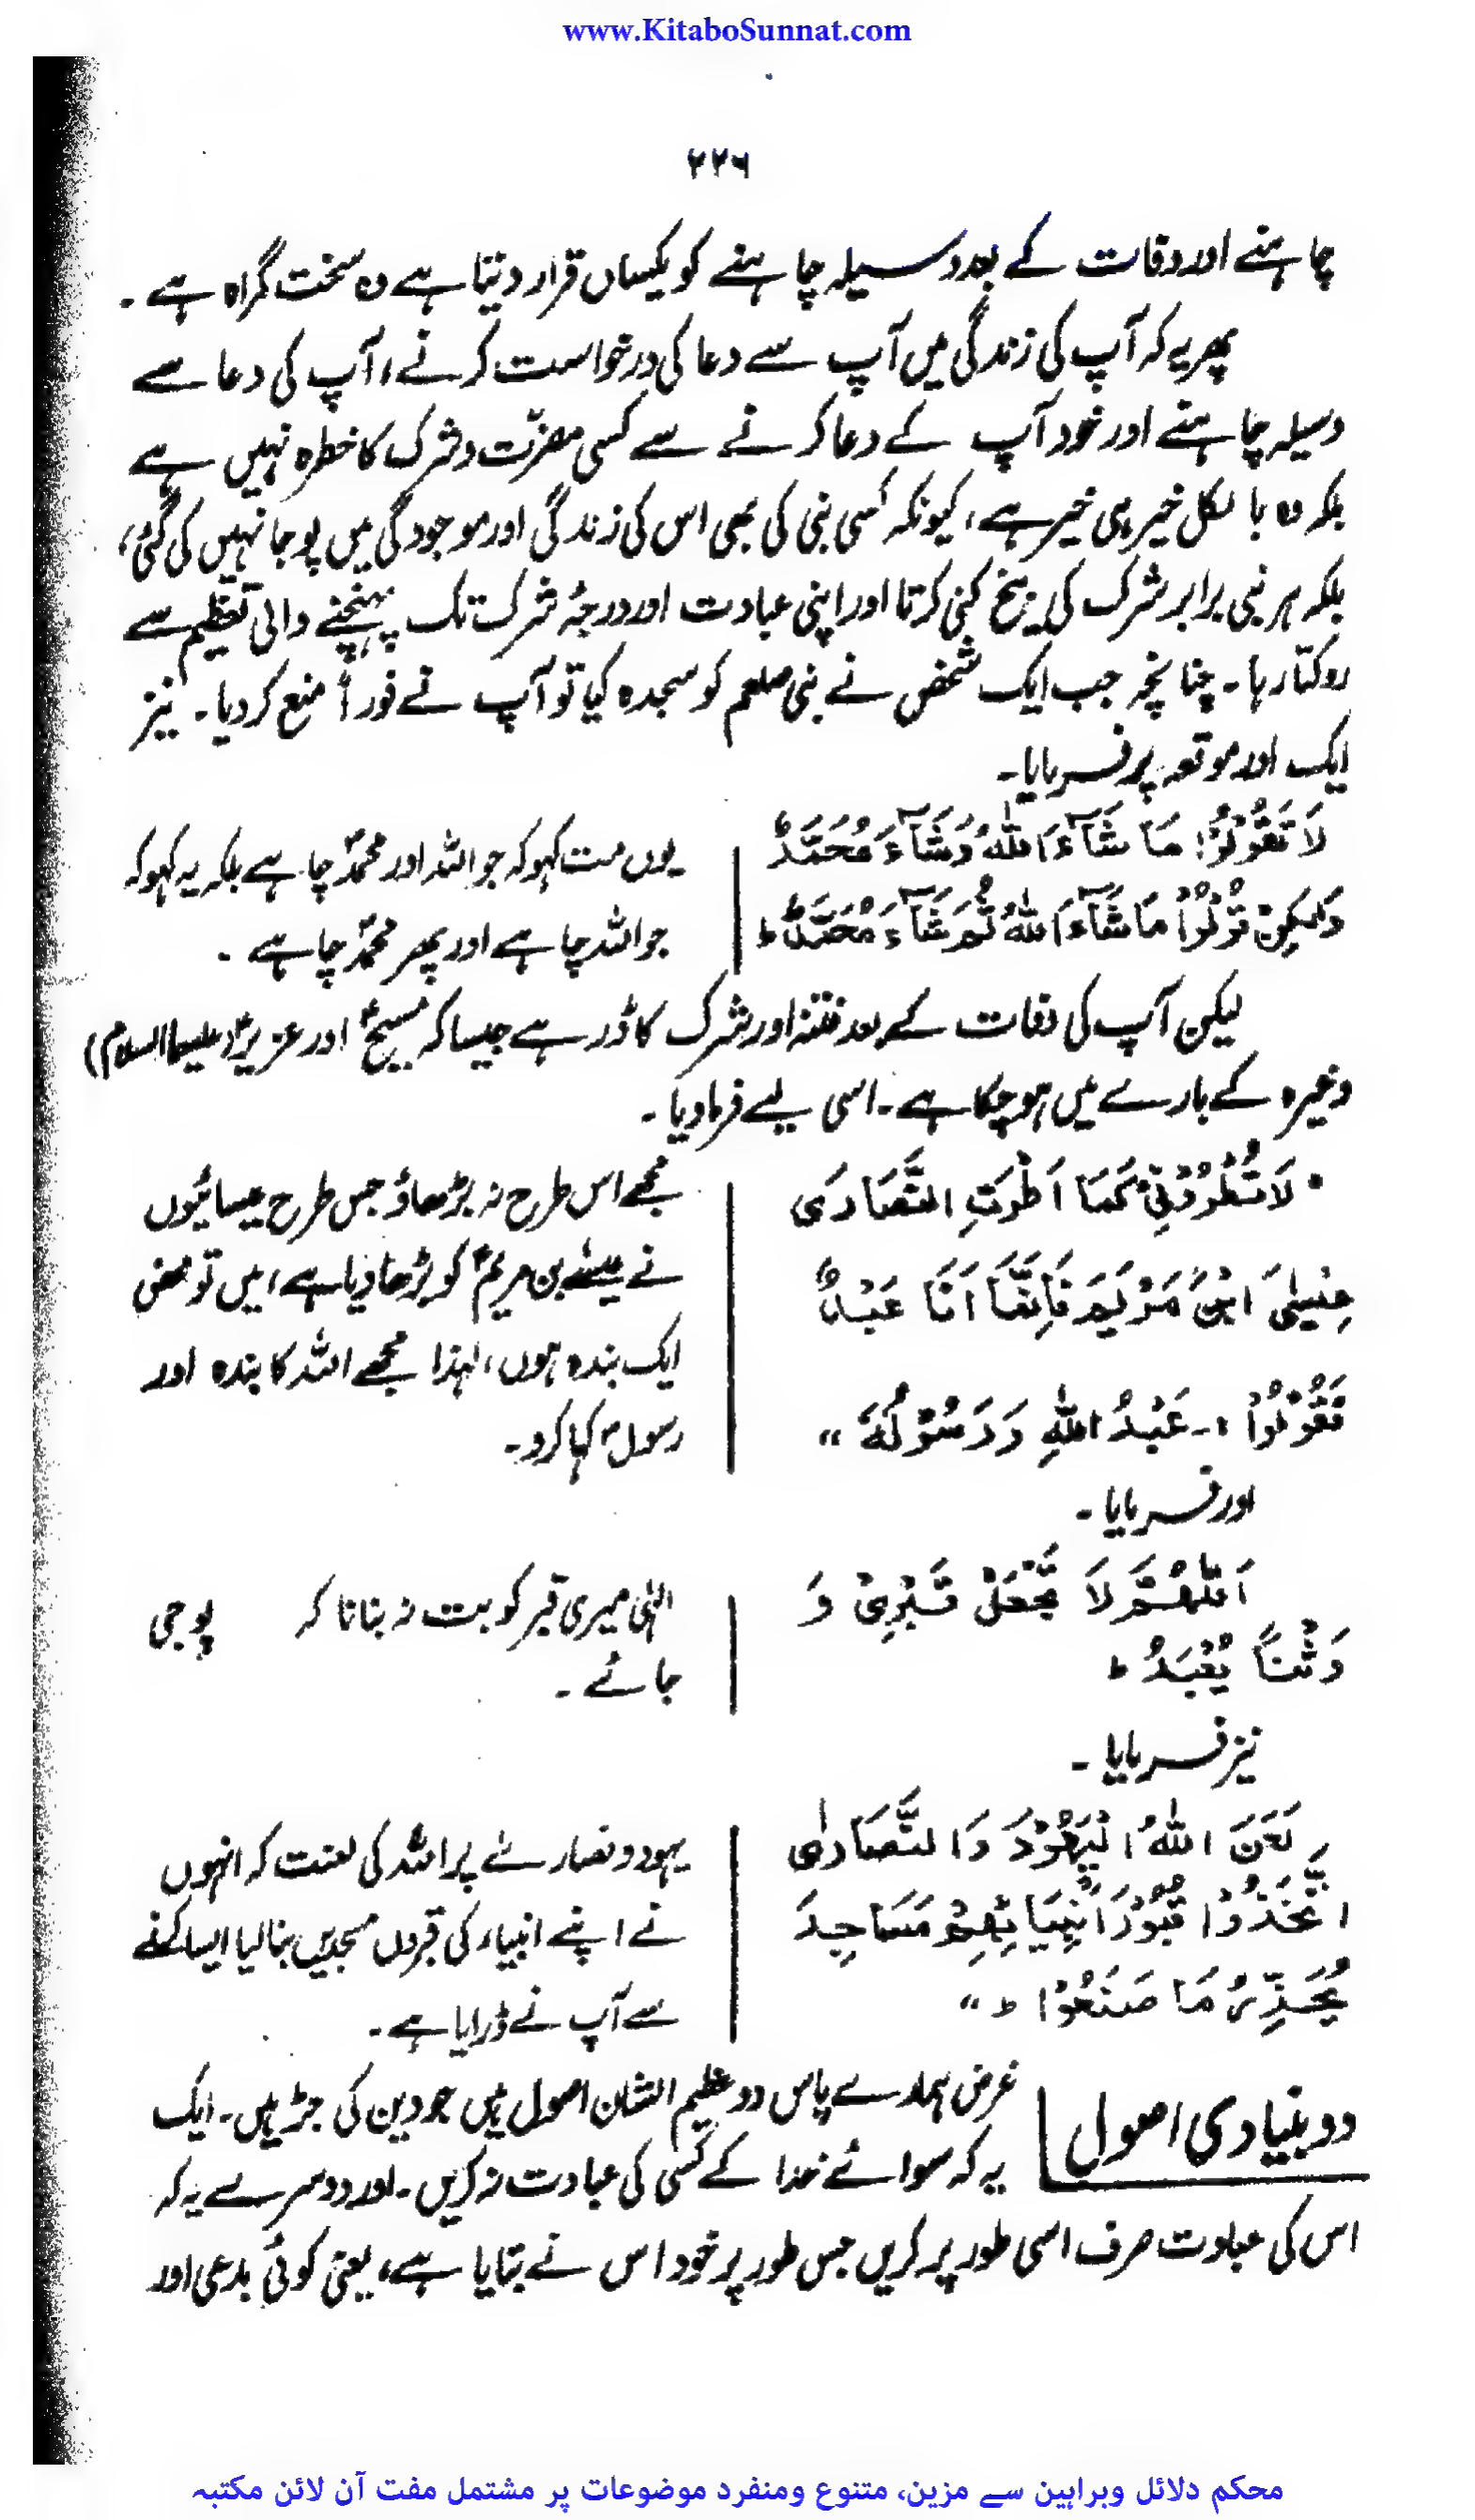 www.KitaboSunnat.com
۲۲۶
چاہنے اور وفات کے بعد وسیلہ چاہنے کو یکساں قرار دیتا ہے وہ سخت گمراہ ہے۔
پھر یہ کہ آپ کی زندگی میں آپ سے دعا کی درخواست کرنے، آپ کی دعا سے
وسیلہ چاہنے اور خود آپ کے دعا کرنے سے کسی مضرّت و شرک کا خطرہ نہیں ہے
بلکہ وہ بالکل خیر ہی خیر ہے، کیونکہ کسی نبی کی بھی اس کی زندگی اور موجودگی میں پوجا نہیں کی گئی،
بلکہ ہر نبی برابر شرک کی بیخ کنی کرتا اور اپنی عبادت اور درجۂ شرک تک پہنچنے والی تعظیم سے
روکتا رہا۔ چنانچہ جب ایک شخص نے نبی صلعم کو سجدہ کیا تو آپ نے فوراً منع کر دیا۔ نیز
ایک اور موقعہ پر فرمایا۔
لَا تَقُوْلُوْا مَا شَآءَ اللّٰهُ وَشَآءَ مُحَمَّدٌ
وَلٰكِنْ قُوْلُوْا مَا شَآءَ اللّٰهُ ثُمَّ شَآءَ مُحَمَّدٌ ط
یوں مت کہو کہ جو اللہ اور محمدؐ چاہے بلکہ یہ کہو کہ
جو اللہ چاہے اور پھر محمدؐ چاہے۔
لیکن آپ کی وفات کے بعد فتنہ اور شرک کا ڈر ہے جیسا کہ مسیحؑ اور عزیرؑ (علیہما السلام)
وغیرہ کے بارے میں ہو چکا ہے۔ اسی لیے فرما دیا۔
"لَا تُطْرُوْنِيْ كَمَا اَطْرَتِ النَّصَارَى
عِيْسٰى ابْنَ مَرْيَمَ فَاِنَّمَا اَنَا عَبْدٌ
فَقُوْلُوْا :۔ عَبْدُ اللّٰهِ وَرَسُوْلُهُ"
مجھے اس طرح نہ بڑھاؤ جس طرح عیسائیوں
نے عیسےٰ بن مریمؑ کو بڑھا دیا ہے، میں تو محض
ایک بندہ ہوں، لہذا مجھے اللہ کا بندہ اور
رسول، کہا کرو۔
اور فرمایا۔
اَللّٰهُمَّ لَا تَجْعَلْ قَبْرِيْ وَ
وَثْنًا يُعْبَدُ ط
الٰہی میری قبر کو بت نہ بنانا کہ پوجی
جائے۔
نیز فرمایا۔
لَعَنَ اللّٰهُ الْيَهُوْدَ وَالنَّصَارٰى
اتَّخَذُوْا قُبُوْرَ اَنْبِيَائِهِمْ مَسَاجِدَ
يُحَذِّرُ مَا صَنَعُوْا ط"
یہود و نصاریٰ پر اللہ کی لعنت کہ انہوں
نے اپنے انبیاء کی قبروں مسجدیں بنا لیا ایسا کرنے
سے آپ نے ڈرایا ہے۔
دو بنیادی اصول
غرض ہمارے پاس دو عظیم الشان اصول ہیں جو دین کی جڑ ہیں۔ ایک
یہ کہ سوائے خدا کے کسی کی عبادت نہ کریں۔ اور دوسرے یہ کہ
اس کی عبادت صرف اسی طور پر کریں جس طور پر خود اس نے بتایا ہے، یعنی کوئی بدعی اور
محکم دلائل وبراہین سے مزین، متنوع ومنفرد موضوعات پر مشتمل مفت آن لائن مکتبہ